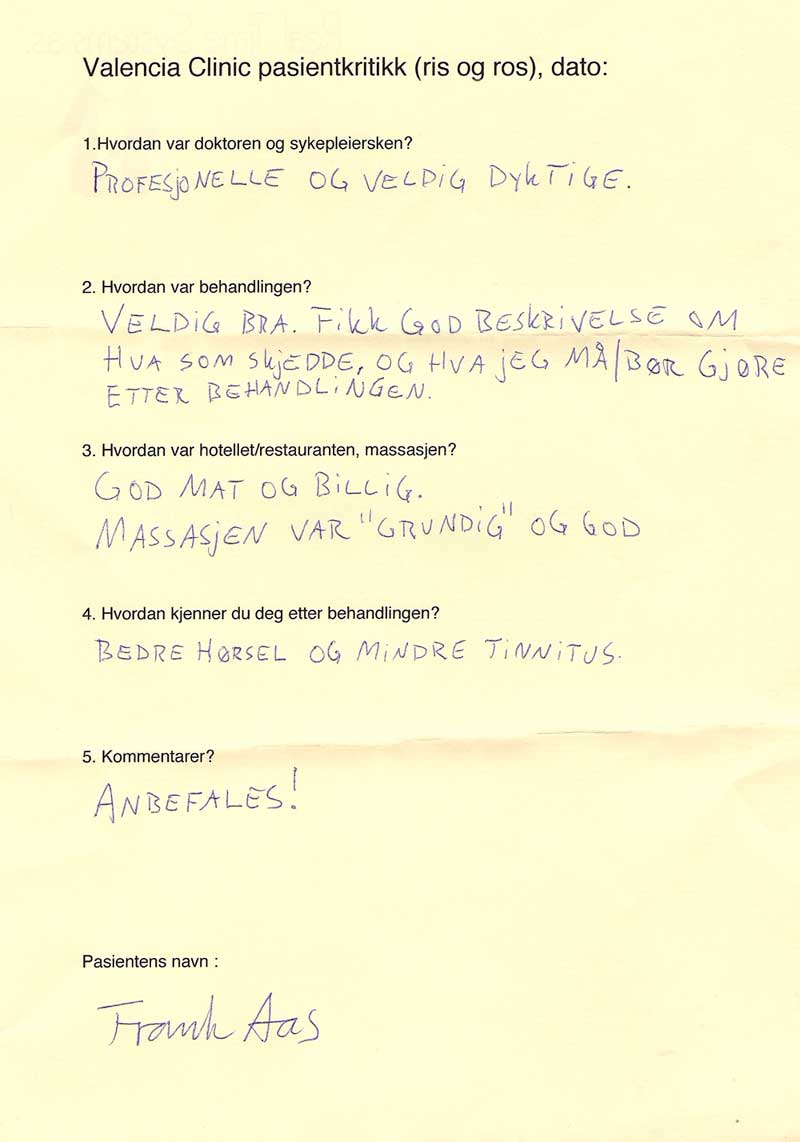 Valencia Clinic pasientkritikk (ris og ros), dato:
1.Hvordan var doktoren og sykepleiersken?
PROFESjONELLE OG VELDiG DykTiGE.
2. Hvordan var behandlingen?
VELDiG BRA. Fikk GOD BESkRiVELSE OM
HVA SOM SkjEDDE, OG HVA jEG MÅ/BØR GjØRE
ETTER BEHANDLiNGEN.
3. Hvordan var hotellet/restauranten, massasjen?
GOD MAT OG BiLLiG.
MASSASjEN VAR "GRUNDiG" OG GOD
4. Hvordan kjenner du deg etter behandlingen?
BEDRE HØRSEL OG MiNDRE TiNNiTUS.
5. Kommentarer?
ANBEFALES!
Pasientens navn :
Frank Aas